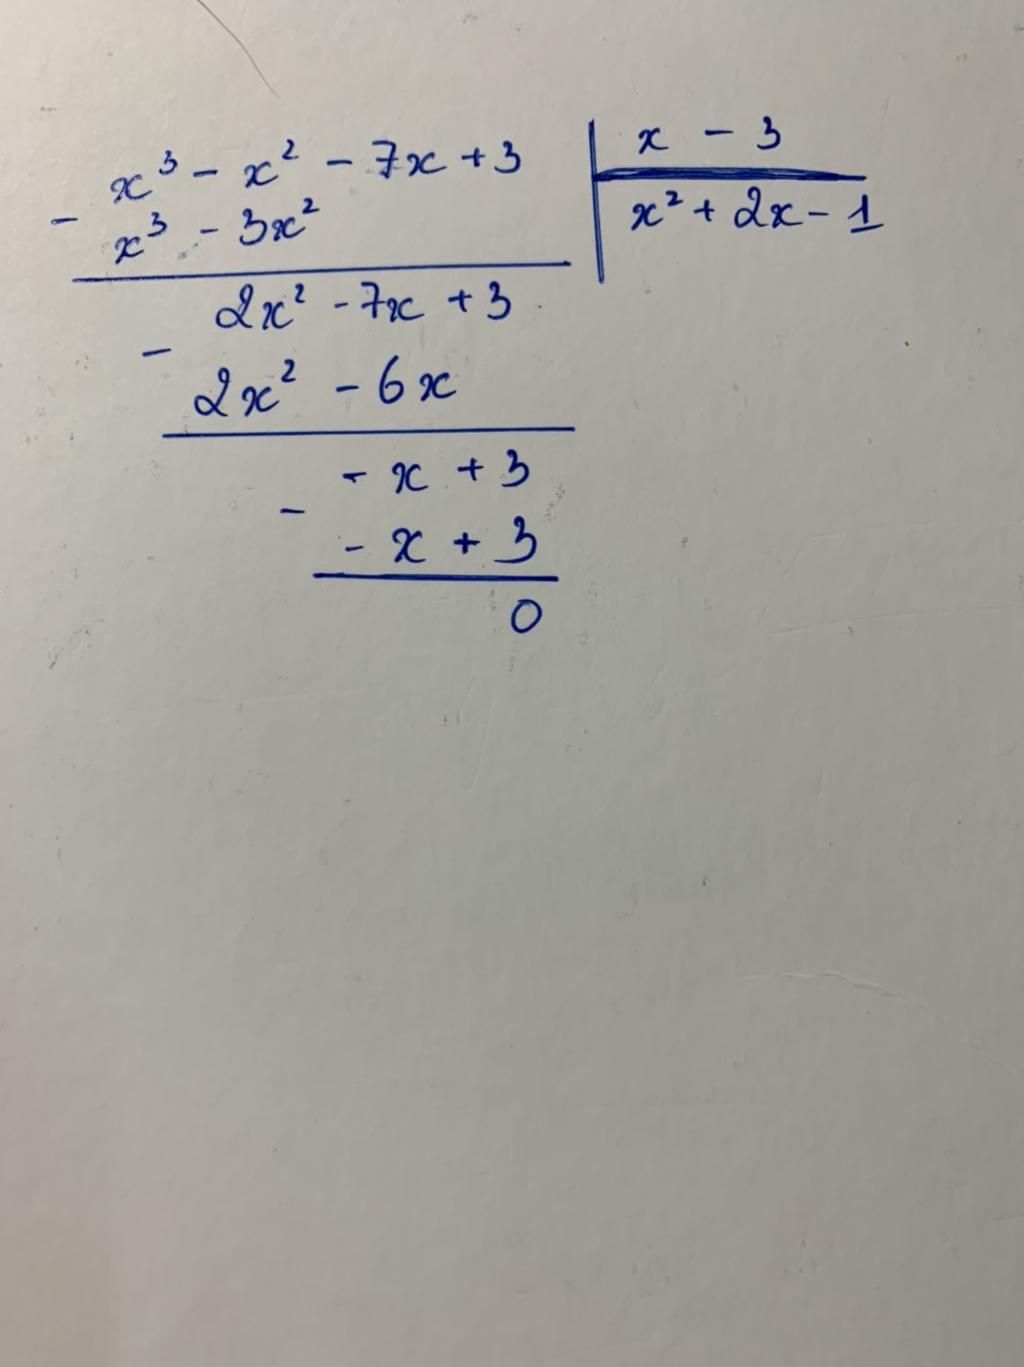 x³ - x² - 7x + 3 | x - 3
- x³ - 3x² | x² + 2x - 1
2x² - 7x + 3
- 2x² - 6x
- x + 3
- - x + 3
0